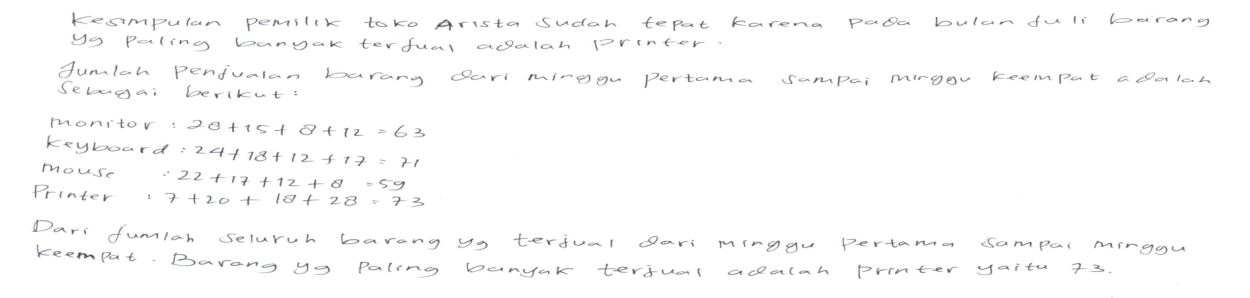 Kesimpulan pemilik toko Arista sudah tepat karena pada bulan juli barang
yg paling banyak terjual adalah printer.
Jumlah penjualan barang dari minggu pertama sampai minggu keempat adalah
sebagai berikut :
monitor : 28+15+8+12 = 63
Keyboard : 24+18+12+17 = 71
mouse : 22+17+12+8 = 59
Printer : 7+20+18+28 = 73
Dari jumlah seluruh barang yg terjual dari minggu pertama sampai minggu
keempat. Barang yg paling banyak terjual adalah printer yaitu 73.